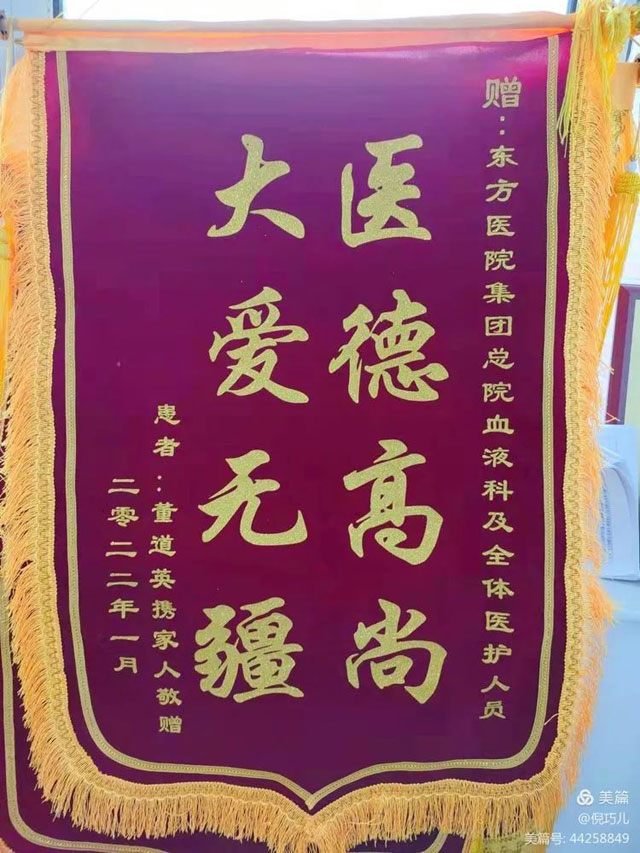 赠：东方医院集团总院血液科及全体医护人员
医德高尚
大爱无疆
患者：董道英携家人敬赠
二零二二年一月
美篇
@倪巧儿
美篇号: 44258849